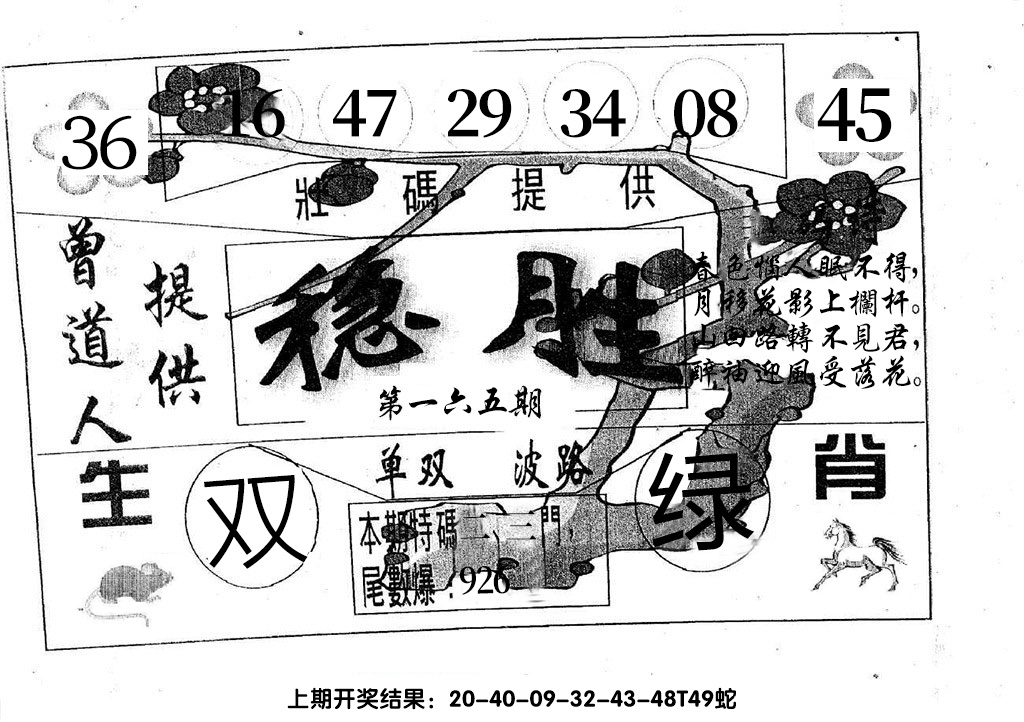 36 16 47 29 34 08 45
壯碼提供
特
曾道人
提供
稳胜
第一六五期
春色惱人眠不得，
月移花影上欄杆。
山回路轉不見君，
醉袖迎風受落花。
单双 波路
生肖
双
绿
本期特碼二、三門，
尾數爆：926
上期开奖结果：20-40-09-32-43-48T49蛇